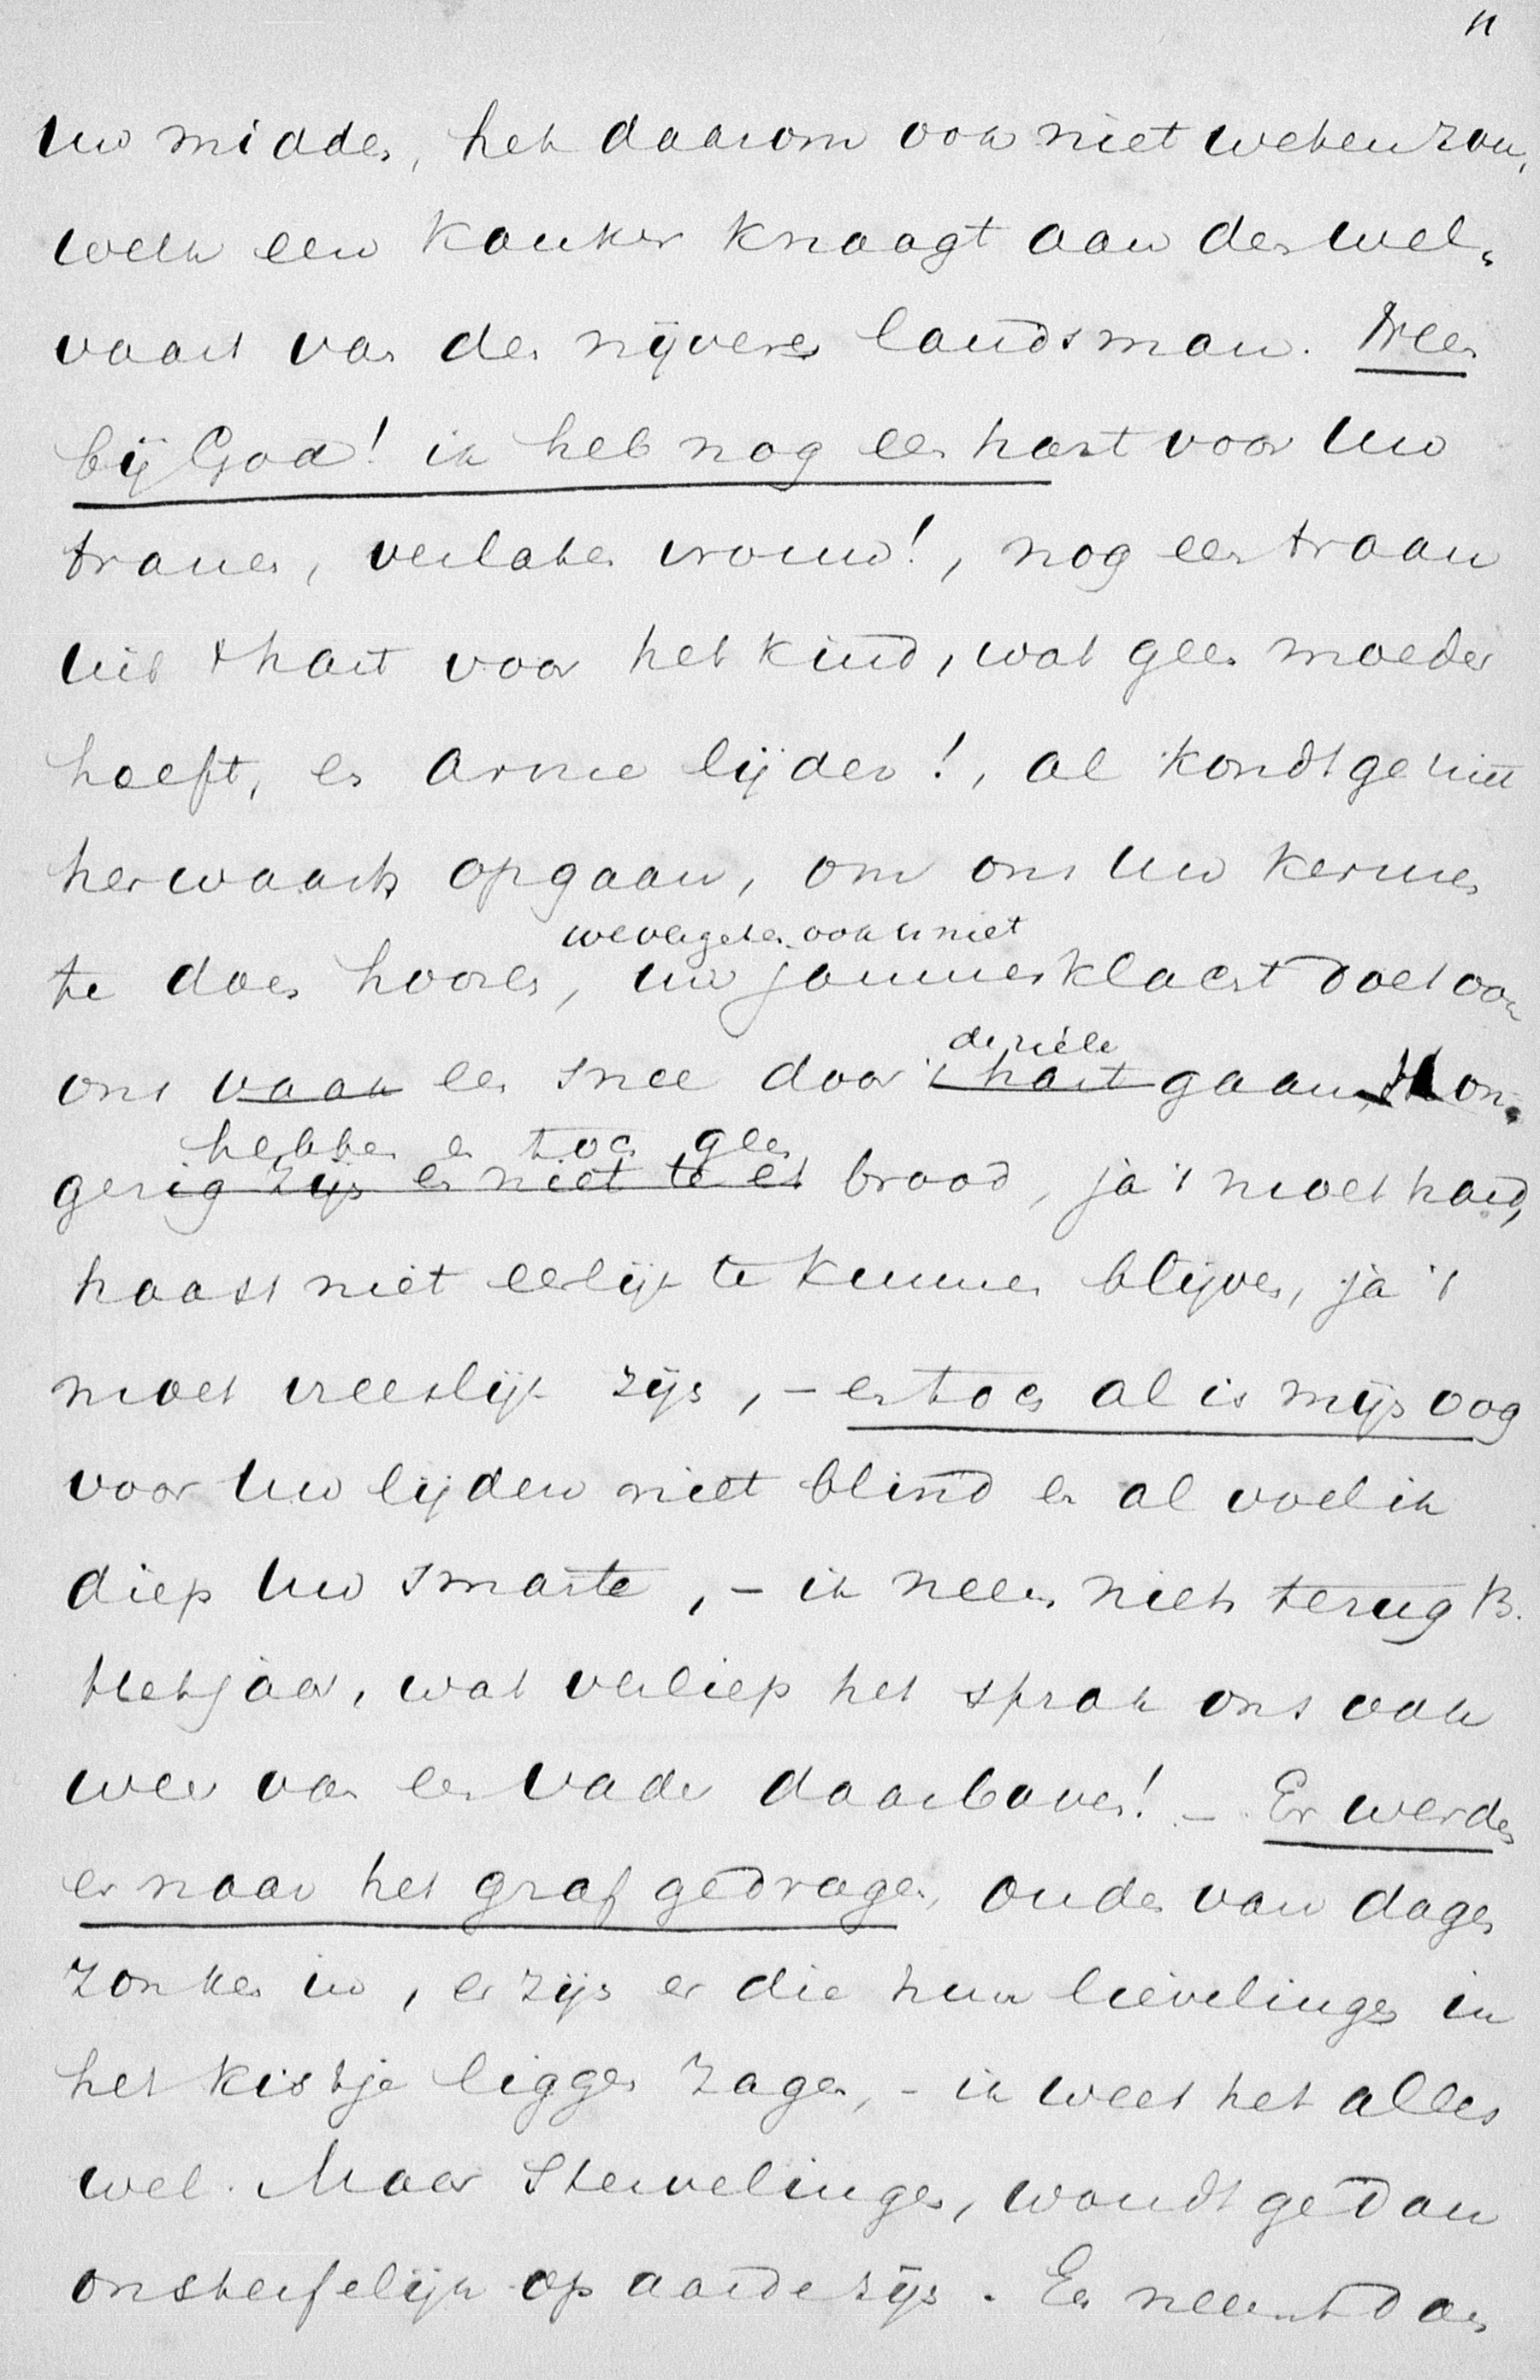 11
Uw midden, het daarom ook niet weten zou,
welk een kanker knaagt aan den wel„
vaart van den nijveren landsman. Neen
bij God! ik heb nog een hart voor Uw
tranen, verlaten vrouw!, nog een traan
uit 't hart voor het kind, wat geen moeder
heeft, en arme lijder!, al kondt ge niet
herwaarts opgaan, om ons Uw kermen
we vergeten ook u niet
te doen hooren, uw jammerklacht doet ook
de ziele
ons vaak een snee door 't hart gaan, Hon„
hebben en toch geen
gerig zijn en niet te et brood, ja 't moet hard,
haast niet eerlijk te kunnen blijven, ja 't
moet vreeslijk zijn, – en toch al is mijn oog
voor Uw lijden niet blind en al voel ik
diep Uw smarte, – ik neem niets terug B.
Het jaar, wat verliep het sprak ons ook
weer van een Vader daarboven! – Er werden
er naar het graf gedragen, ouden van dagen
zonken in, er zijn er die hun lievelingen in
het kistje liggen zagen, – ik weet het alles
wel. Maar Stervelingen, woudt ge dan
onsterfelijk op aarde zijn. En neemt dan